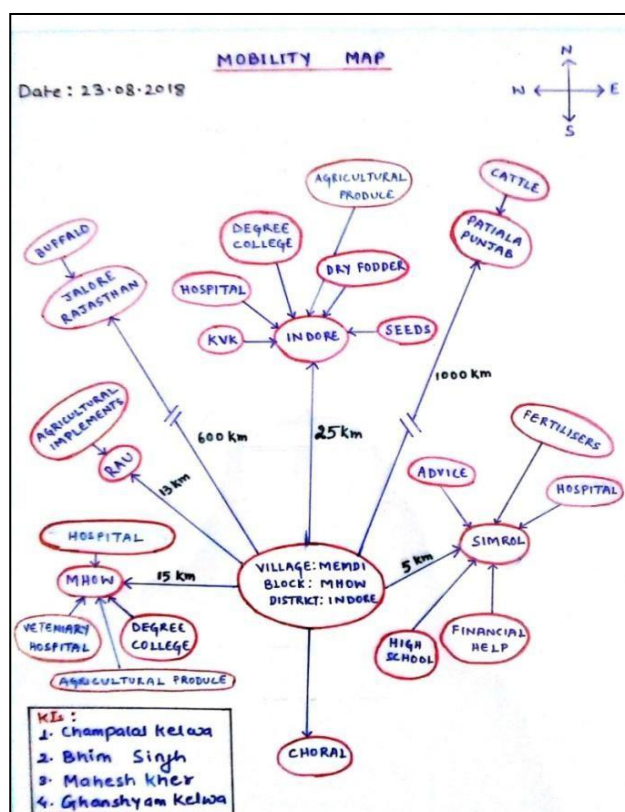 MOBILITY MAP
Date: 23.08.2018
N
W
E
S
CATTLE
PATIALA
PUNJAB
AGRICULTURAL
PRODUCE
DEGREE
COLLEGE
DRY FODDER
HOSPITAL
KVK
INDORE
SEEDS
BUFFALO
JALORE
RAJASTHAN
600 km
25 km
1000 km
AGRICULTURAL
IMPLEMENTS
RAU
13 km
FERTILISERS
ADVICE
HOSPITAL
SIMROL
5 km
HIGH
SCHOOL
FINANCIAL
HELP
HOSPITAL
MHOW
15 km
VETENIARY
HOSPITAL
DEGREE
COLLEGE
AGRICULTURAL PRODUCE
VILLAGE: MEMDI
BLOCK: MHOW
DISTRICT: INDORE
CHORAL
KIs:
1. Champalal Kelwa
2. Bhim Singh
3. Mahesh Kher
4. Ghanshyam Kelwa